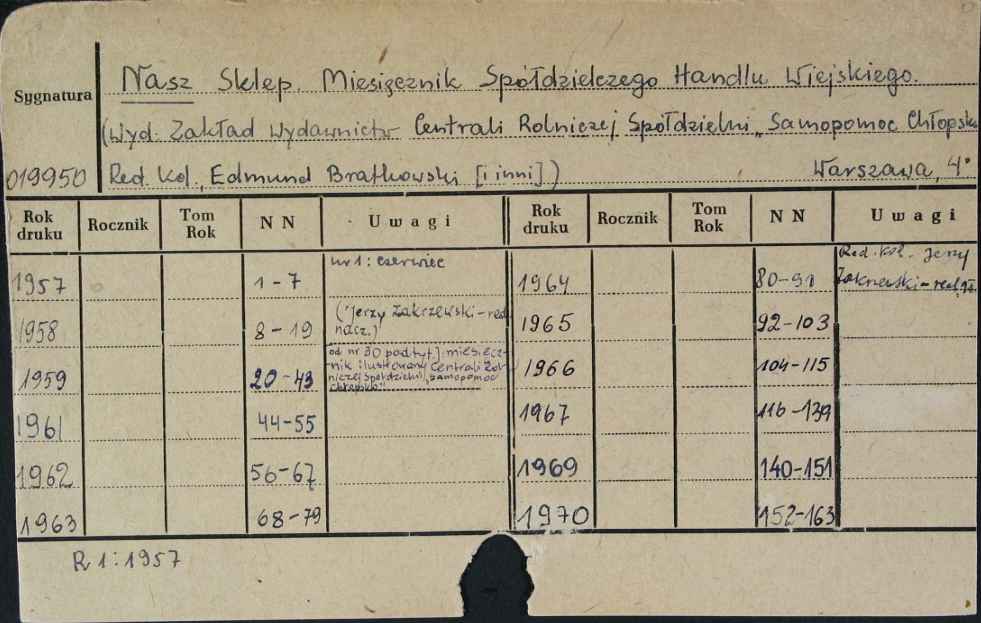 Nasz Sklep. Miesięcznik Spółdzielczego Handlu Wiejskiego.
Sygnatura
(Wyd. Zakład Wydawnictw Centrali Rolniczej Spółdzielni "Samopomoc Chłopsk
019950 Red. Kol., Edmund Bratkowski [i inni]) Warszawa, 4°
Rok druku Rocznik Tom Rok NN Uwagi Rok druku Rocznik Tom Rok NN Uwagi
1957 1-7 nr 1: czerwiec 1964 80-91 Red. kol. Jerzy
Zakrzewski-red.
1958 8-19 (Jerzy Zakrzewski-red
nacz.) 1965 92-103
1959 20-43 od nr 30 podtyt.: miesięcz-
nik ilustrowany Centrali Rol-
niczej Spółdzielni "Samopomoc
Chłopska" 1966 104-115
1961 44-55 1967 116-139
1962 56-67 1969 140-151
1963 68-79 1970 152-163
R 1:1957